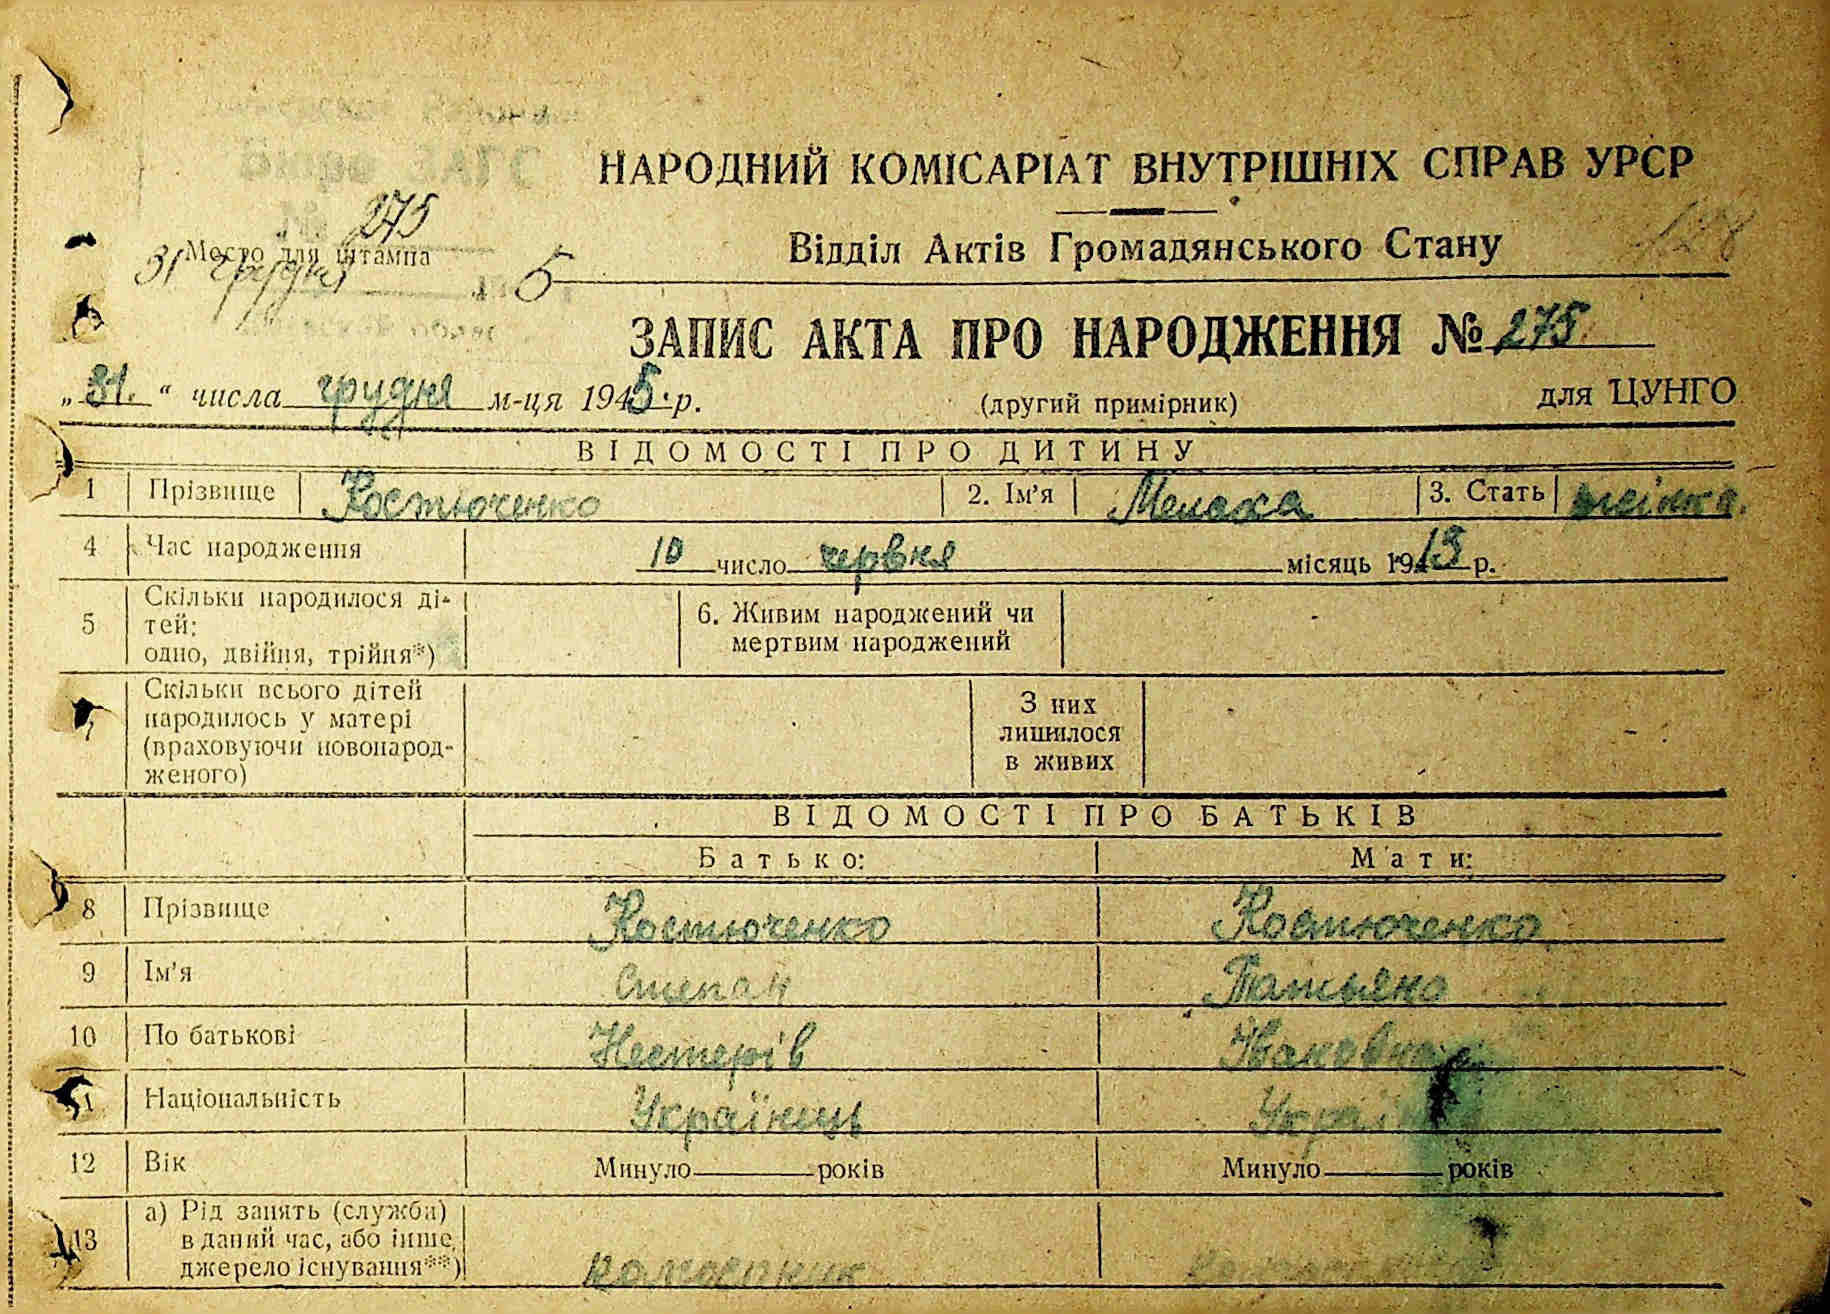 НАРОДНИЙ КОМІСАРІАТ ВНУТРІШНІХ СПРАВ УРСР
275
Место для штампа
128
31 грудня 5
Відділ Актів Громадянського Стану
ЗАПИС АКТА ПРО НАРОДЖЕННЯ № 275
„31." числа грудня м-ця 1945 р. (другий примірник) для ЦУНГО
ВІДОМОСТІ ПРО ДИТИНУ
1 Прізвище Костюченко 2. Ім’я 3. Стать жінка.
4 Час народження 10 число червня місяць 1913 р.
5 Скільки народилося ді-
тей:
одно, двійня, трійня*)
6. Живим народжений чи
мертвим народжений
7 Скільки всього дітей
народилось у матері
(враховуючи новонарод-
женого)
З них
лишилося
в живих
ВІДОМОСТІ ПРО БАТЬКІВ
Батько: Мати:
8 Прізвище Костюченко Костюченко
9 Ім’я Степан Татьяна
10 По батькові Нестерів Івановна
11 Національність Українець
12 Вік Минуло років Минуло років
13 а) Рід занять (служби)
в даний час, або інше
джерело існування**)
колгоспник